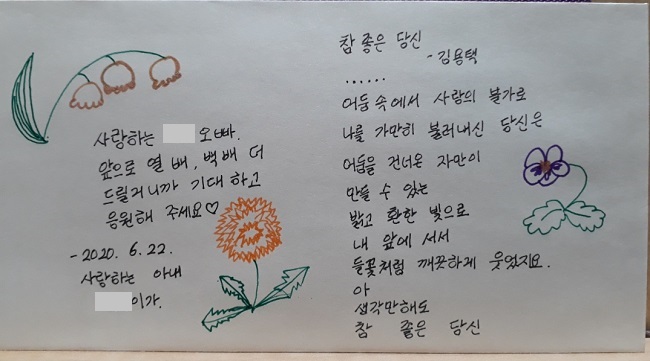 사랑하는 오빠.
앞으로 열 배, 백배 더
드릴거니까 기대하고
응원해 주세요♡
-2020. 6. 22.
사랑하는 아내
이가.
참 좋은 당신
-김용택
......
어둠속에서 사랑의 불가로
나를 가만히 불러내신 당신은
어둠을 건너온 자만이
만들 수 있는
밝고 환한 빛으로
내 앞에 서서
들꽃처럼 깨끗하게 웃었지요.
아
생각만해도
참 좋은 당신